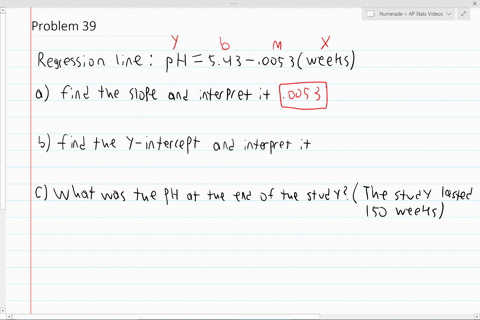 Numerade > AP Stats Videos
Problem 39
Y b m X
Regression line: pH = 5.43 - .0053 (weeks)
a) find the slope and interpret it .0053
b) find the Y-intercept and interpret it
c) What was the PH at the end of the study? (The study lasted
150 weeks)